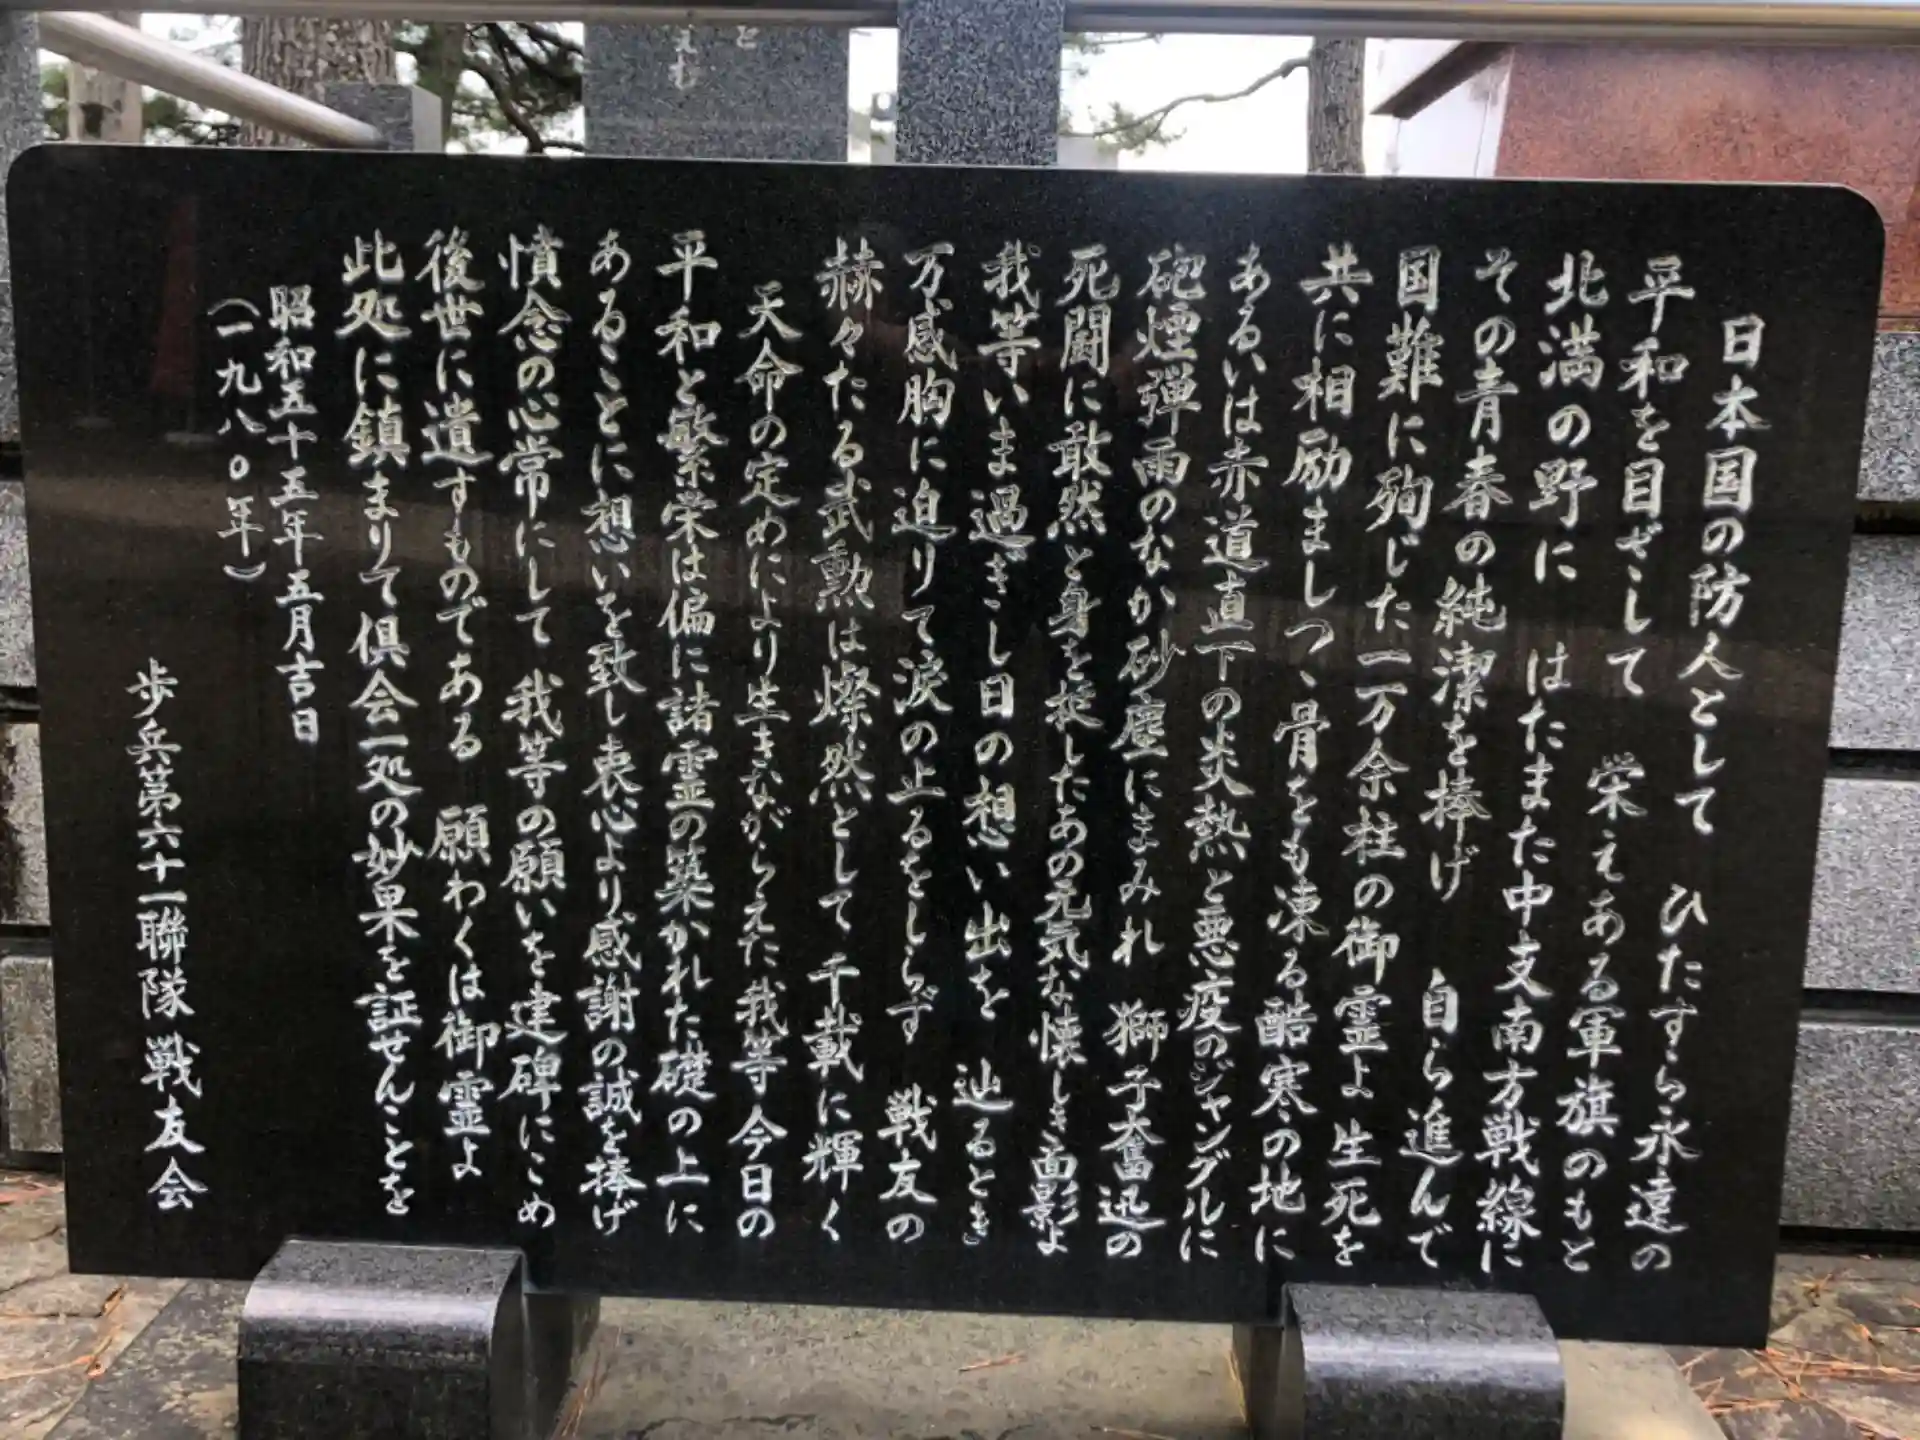 日本国の防人として ひたすら永遠の
平和を目ざして 栄えある軍旗のもと
北満の野に はたまた中支南方戦線に
その青春の純潔を捧げ 自ら進んで
国難に殉じた一万余柱の御霊よ 生死を
共に相励ましつゝ骨をも凍る酷寒の地に
あるいは赤道直下の炎熱と悪疫のジャングルに
砲煙弾雨のなか砂塵にまみれ 獅子奮迅の
死闘に敢然と身を挺したあの元気な懐しき面影よ
我等いま過ぎし日の想い出を 辿るとき
万感胸に迫りて涙の止るをしらず 戦友の
赫々たる武勲は燦然として千載に輝く
天命の定めにより生きながらえた我等今日の
平和と繁栄は偏に諸霊の築かれた礎の上に
あることに想いを致し衷心より感謝の誠を捧げ
憤念の心常にして 我等の願いを建碑にこめ
後世に遺すものである 願わくは御霊よ
此処に鎮まりて倶会一処の妙果を証せんことを
昭和五十五年五月吉日
(一九八〇年)
歩兵第六十一聯隊戦友会